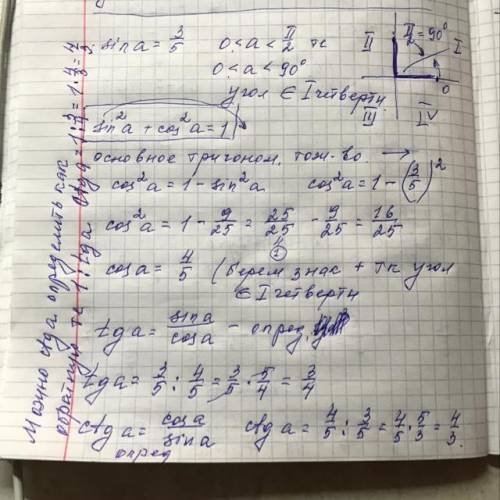 sin a = 3/5   0 < a < π/2   те
0 < a < 90°
угол ∈ I четверти
II   π/2 = 90°   I
0
III   IV
sin²a + cos²a = 1
основное тригоном. тож-во. →
cos²a = 1 - sin²a   cos²a = 1 - (3/5)²
cos²a = 1 - 9/25 = 25/25 - 9/25 = 16/25
cos a = 4/5   (берем знак + тк угол
∈ I четверти
tg a = sin a/cos a - опред.
tg a = 3/5 : 4/5 = 3/5 · 5/4 = 3/4
ctg a = cos a/sin a   ctg a = 4/5 : 3/5 = 4/5 · 5/3 = 4/3.
опред
Можно ctg a определить как
обратную те 1 : tg a   ctg a = 1 : 3/4 = 1 · 4/3 = 4/3